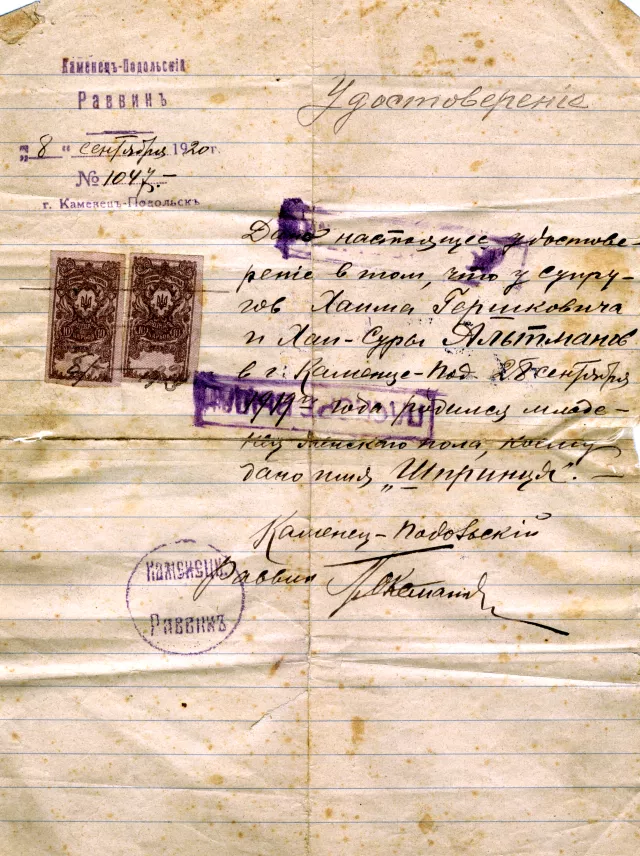 Каменецъ-Подольскій
Раввинъ
"8" сентября 1920 г.
№ 1047.-
г. Каменецъ-Подольскъ
Удостоверение
Дано настоящее удостове-
рение в том, что у супру-
гов Хаима Гершковича
и Хаи-Суры Альтманов
в г. Каменце-Под. 28 сентября
1919 года родился младе-
нец женскаго пола, коему
дано имя „Шпринця". —
Каменец-Подольский
Раввин
Каменецъ
Раввинъ